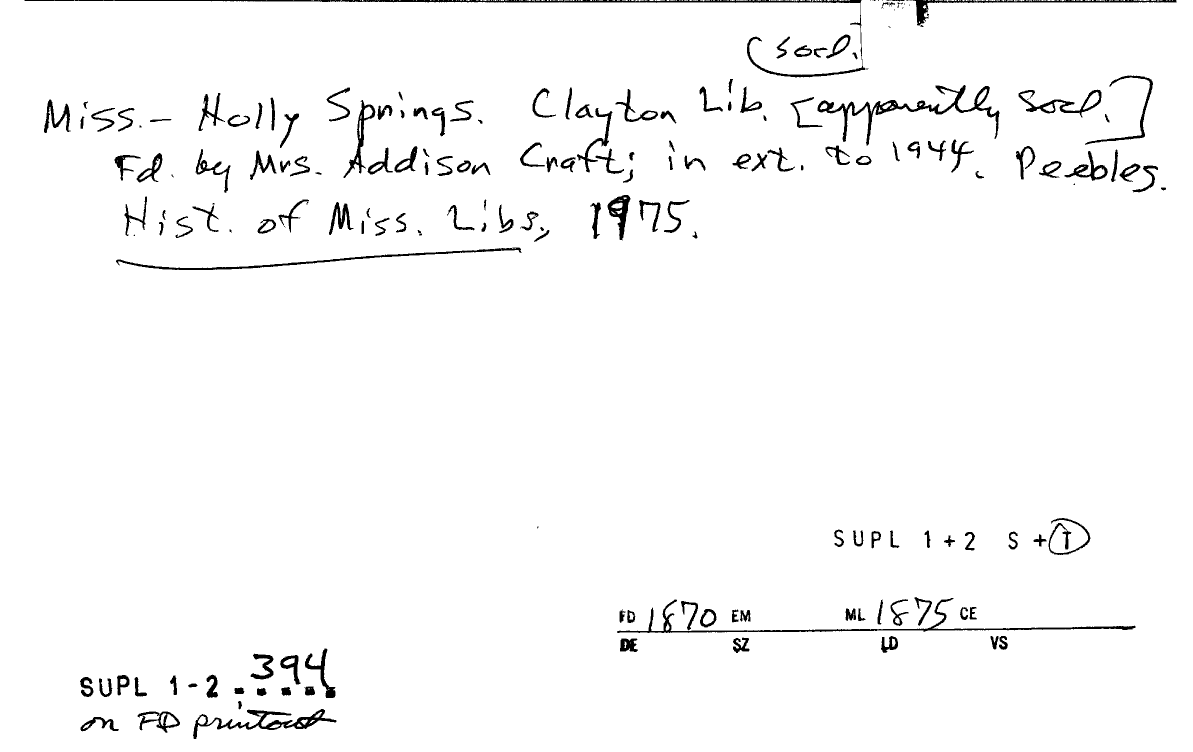 (socl.
Miss.- Holly Springs. Clayton Lib. [apparently socl.]
Fd. by Mrs. Addison Craft; in ext. to 1944. Peebles.
Hist. of Miss. Libs., 1975.
SUPL 1+2 S + T
FD 1870 EM ML 1875 CE
DE SZ LD VS
SUPL 1-2 . 394
on FD printout